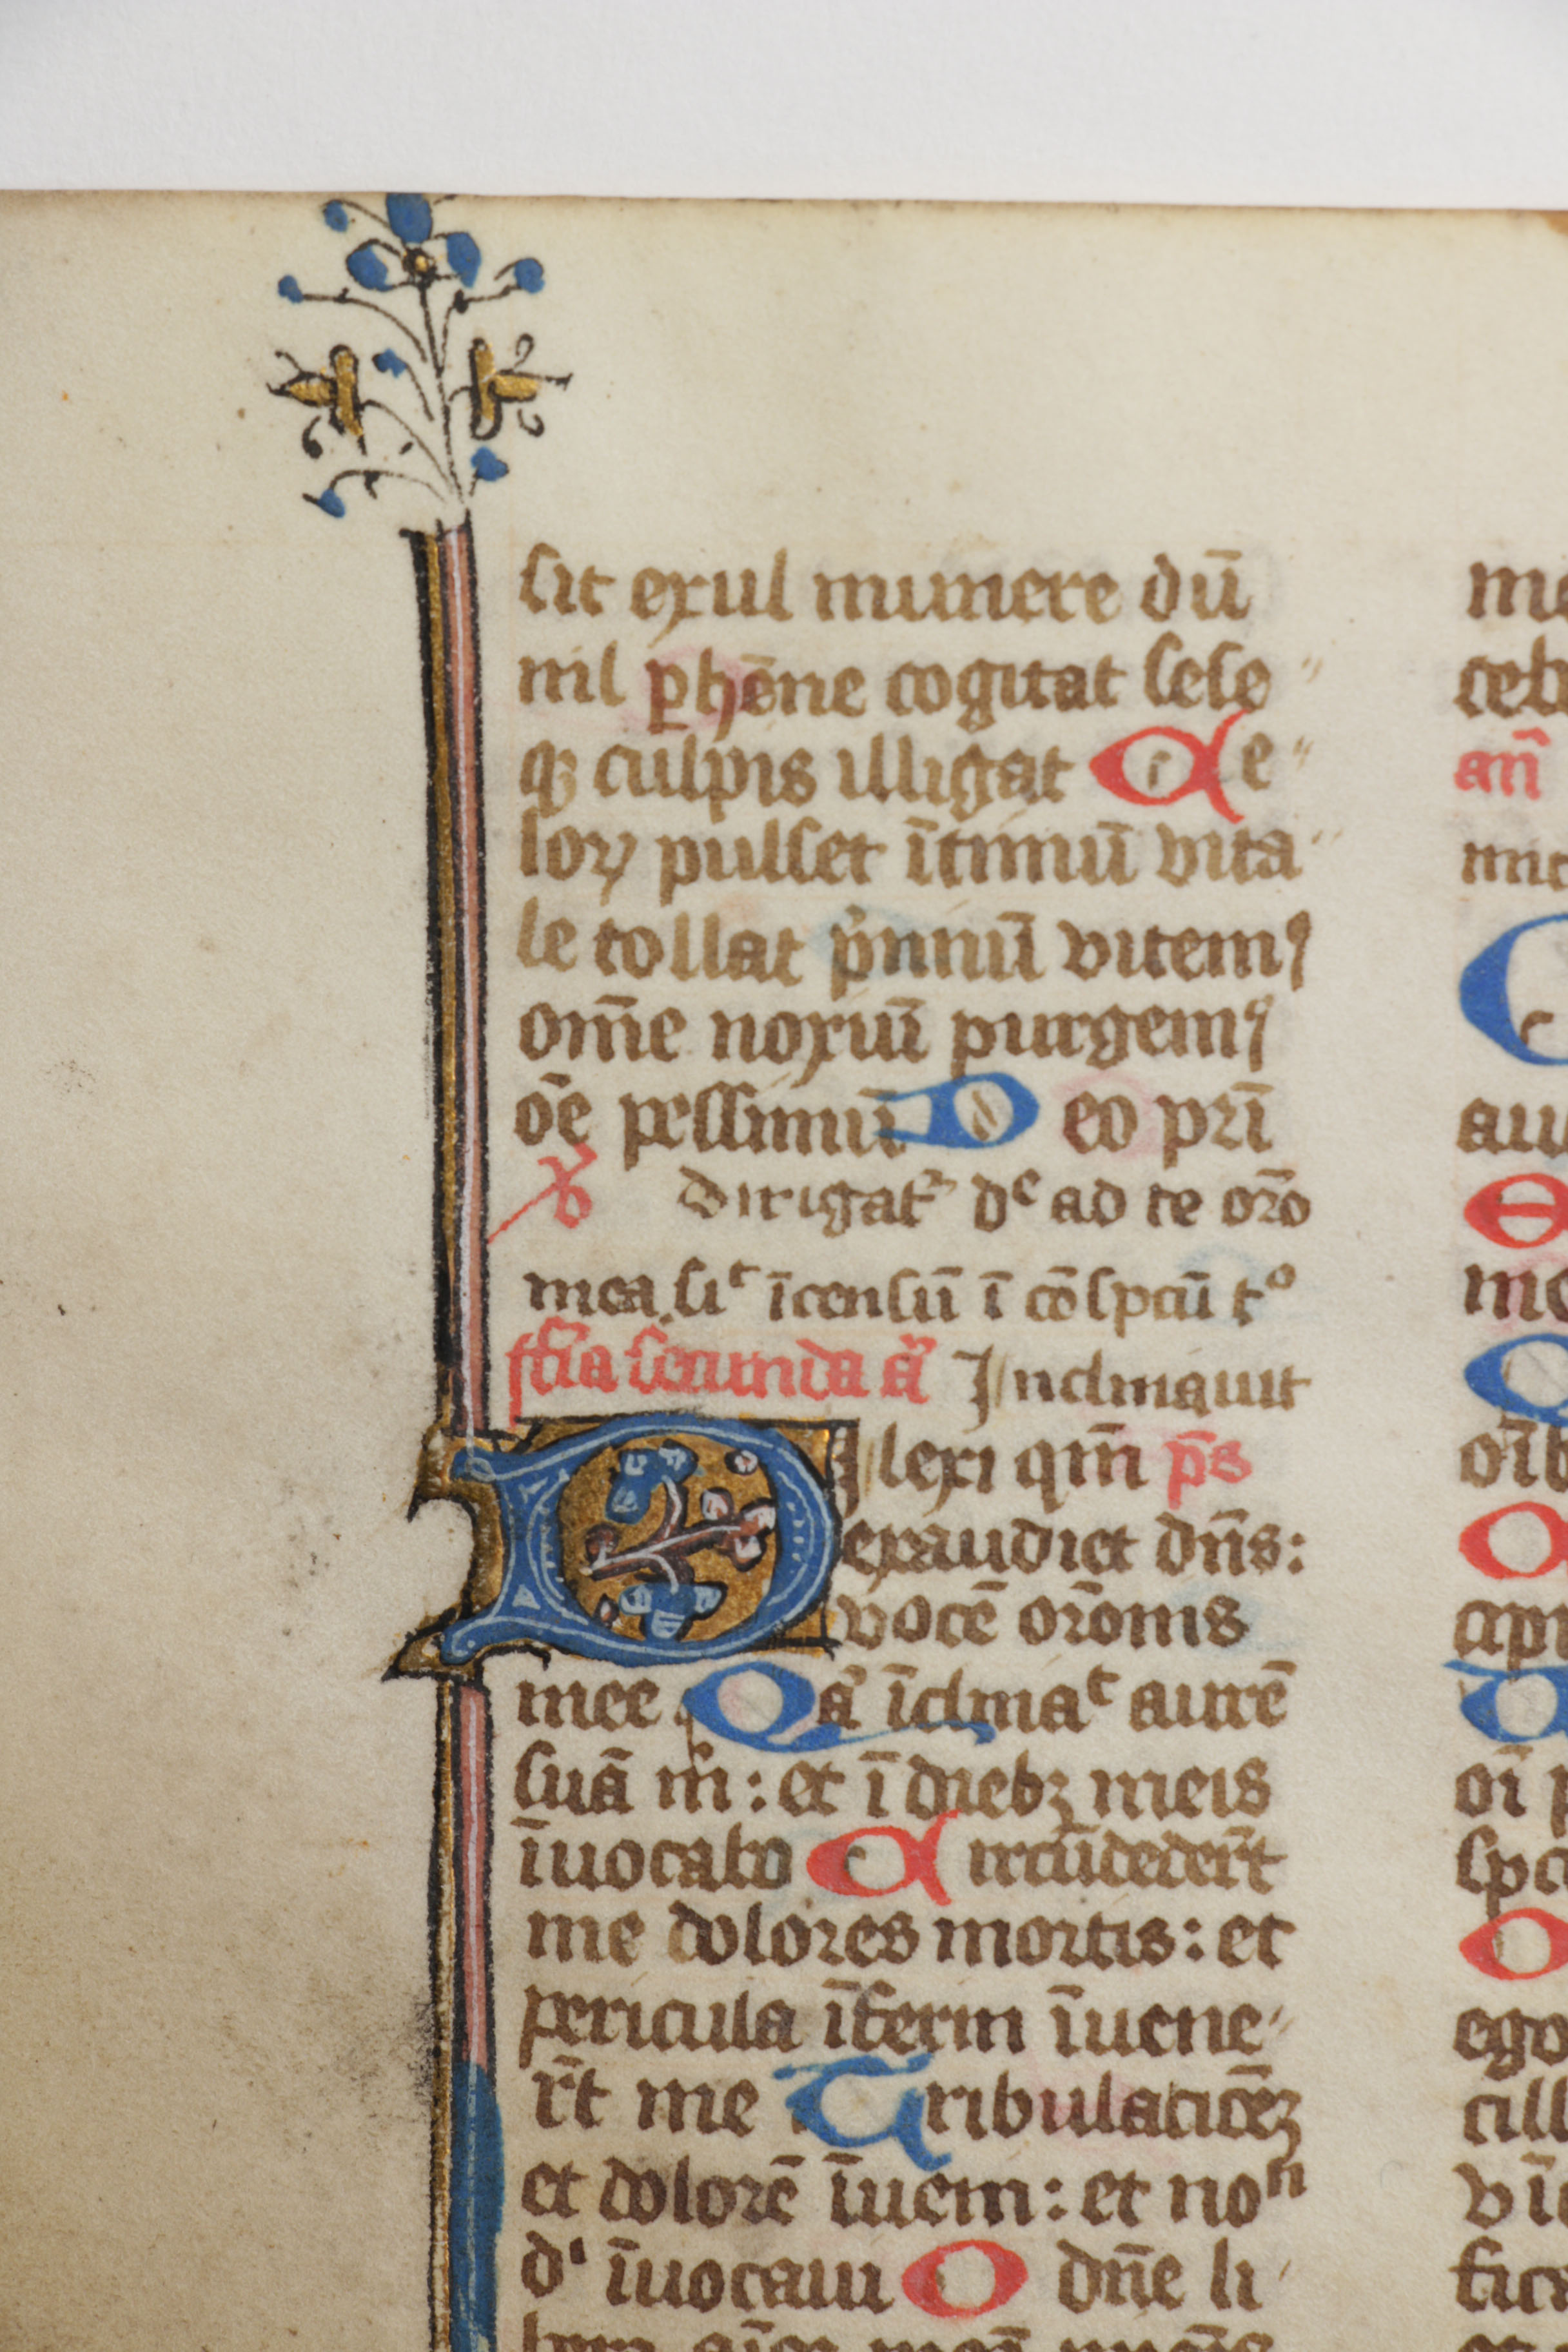 sit exul munere dū
nil ꝑhēne cogitat sese
qꝫ culpis illigat Ce
loꝝ pulset ītimū vita
le tollat p̾miū vitemꝰ
om̄e noxiū purgemꝰ
ōe pessimū Deo pr̄i
℣ Dirigat᷑ dᵉ ad te or̄o
mea siᵗ īcensū ī cōspcū tᵒ
ffia secunda a᷑ Inclinauit
Dilexi qm̄ p̄s
exaudiet dn̄s:
vocē or̄onis
mee Qa᷑ īclinaᵗ aurē
suā m̄: et ī diebꝫ meis
īuocabo Circūdeder̄t
me dolores mortis: et
pericula īferni īuene
r̄t me Tribulacōeꝫ
et dolorē īueni: et noⁿ
dⁱ īuocaui O dn̄e li
me
ceb
an̄
C
au
E
me
O
oīb
O
oī
spc
O
ego
cill
vi